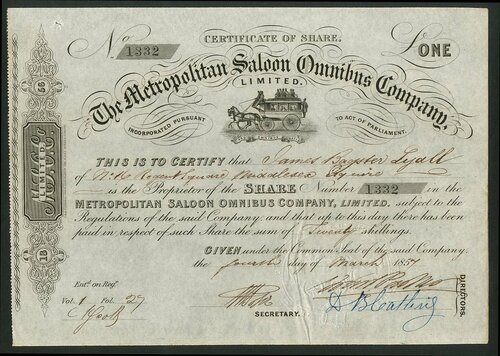 CERTIFICATE OF SHARE.
No. 1332
£ONE
The Metropolitan Saloon Omnibus Company,
LIMITED.
INCORPORATED PURSUANT TO ACT OF PARLIAMENT.
THIS IS TO CERTIFY that James Bagster Lyall
of Regent Square Middlesex Esquire
is the Proprietor of the SHARE Number 1332 in the
METROPOLITAN SALOON OMNIBUS COMPANY, LIMITED. subject to the
Regulations of the said Company: and that up to this day there has been
paid in respect of such Share the sum of Twenty shillings.
GIVEN under the Common Seal of the said Company.
the fourth day of March 1857
Entd. on Regr.
Vol. 1 Fol. 27
SECRETARY.
DIRECTORS.